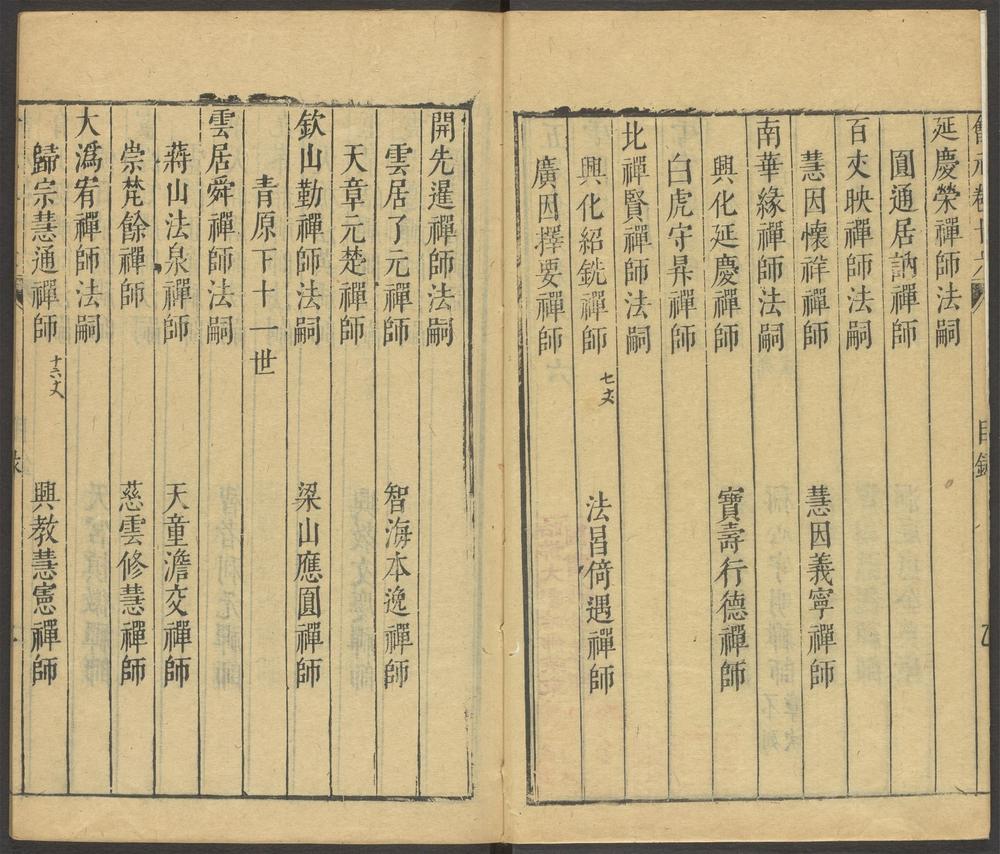 目錄
延慶榮禪師法嗣
圓通居訥禪師
百丈映禪師法嗣
慧因懷祥禪師　慧因義寧禪師
南華緣禪師法嗣
興化延慶禪師　寶壽行德禪師
白虎守昇禪師
北禪賢禪師法嗣
興化紹銑禪師　七丈　法昌倚遇禪師
廣因擇要禪師
開先暹禪師法嗣
雲居了元禪師　智海本逸禪師
天章元楚禪師
欽山勤禪師法嗣　梁山應圓禪師
青原下十一世
雲居舜禪師法嗣
蔣山法泉禪師　天童澹交禪師
崇梵餘禪師　慈雲修慧禪師
大溈宥禪師法嗣
歸宗慧通禪師　十六丈　興教慧憲禪師